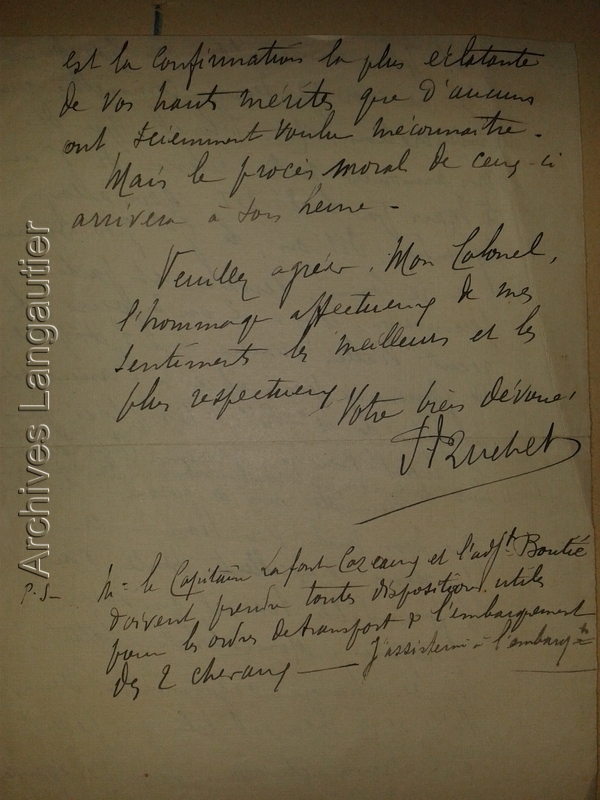 est la confirmation la plus éclatante
de vos hauts mérites que d'aucuns
ont sciemment voulu méconnaître.
Mais le procès moral de ceux-ci
arrivera à son heure -
Veuillez agréer, Mon Colonel,
l'hommage affectueux de mes
sentiments les meilleurs et les
plus respectueux
Votre bien dévoué,
P.S- M. le Capitaine Lafont-Cazeaux et l'adjt Boutié
doivent prendre toutes dispositions utiles
pour les ordres de transport & l'embarquement
des 2 chevaux — J'assisterai à l'embarqts
Archives Langautier